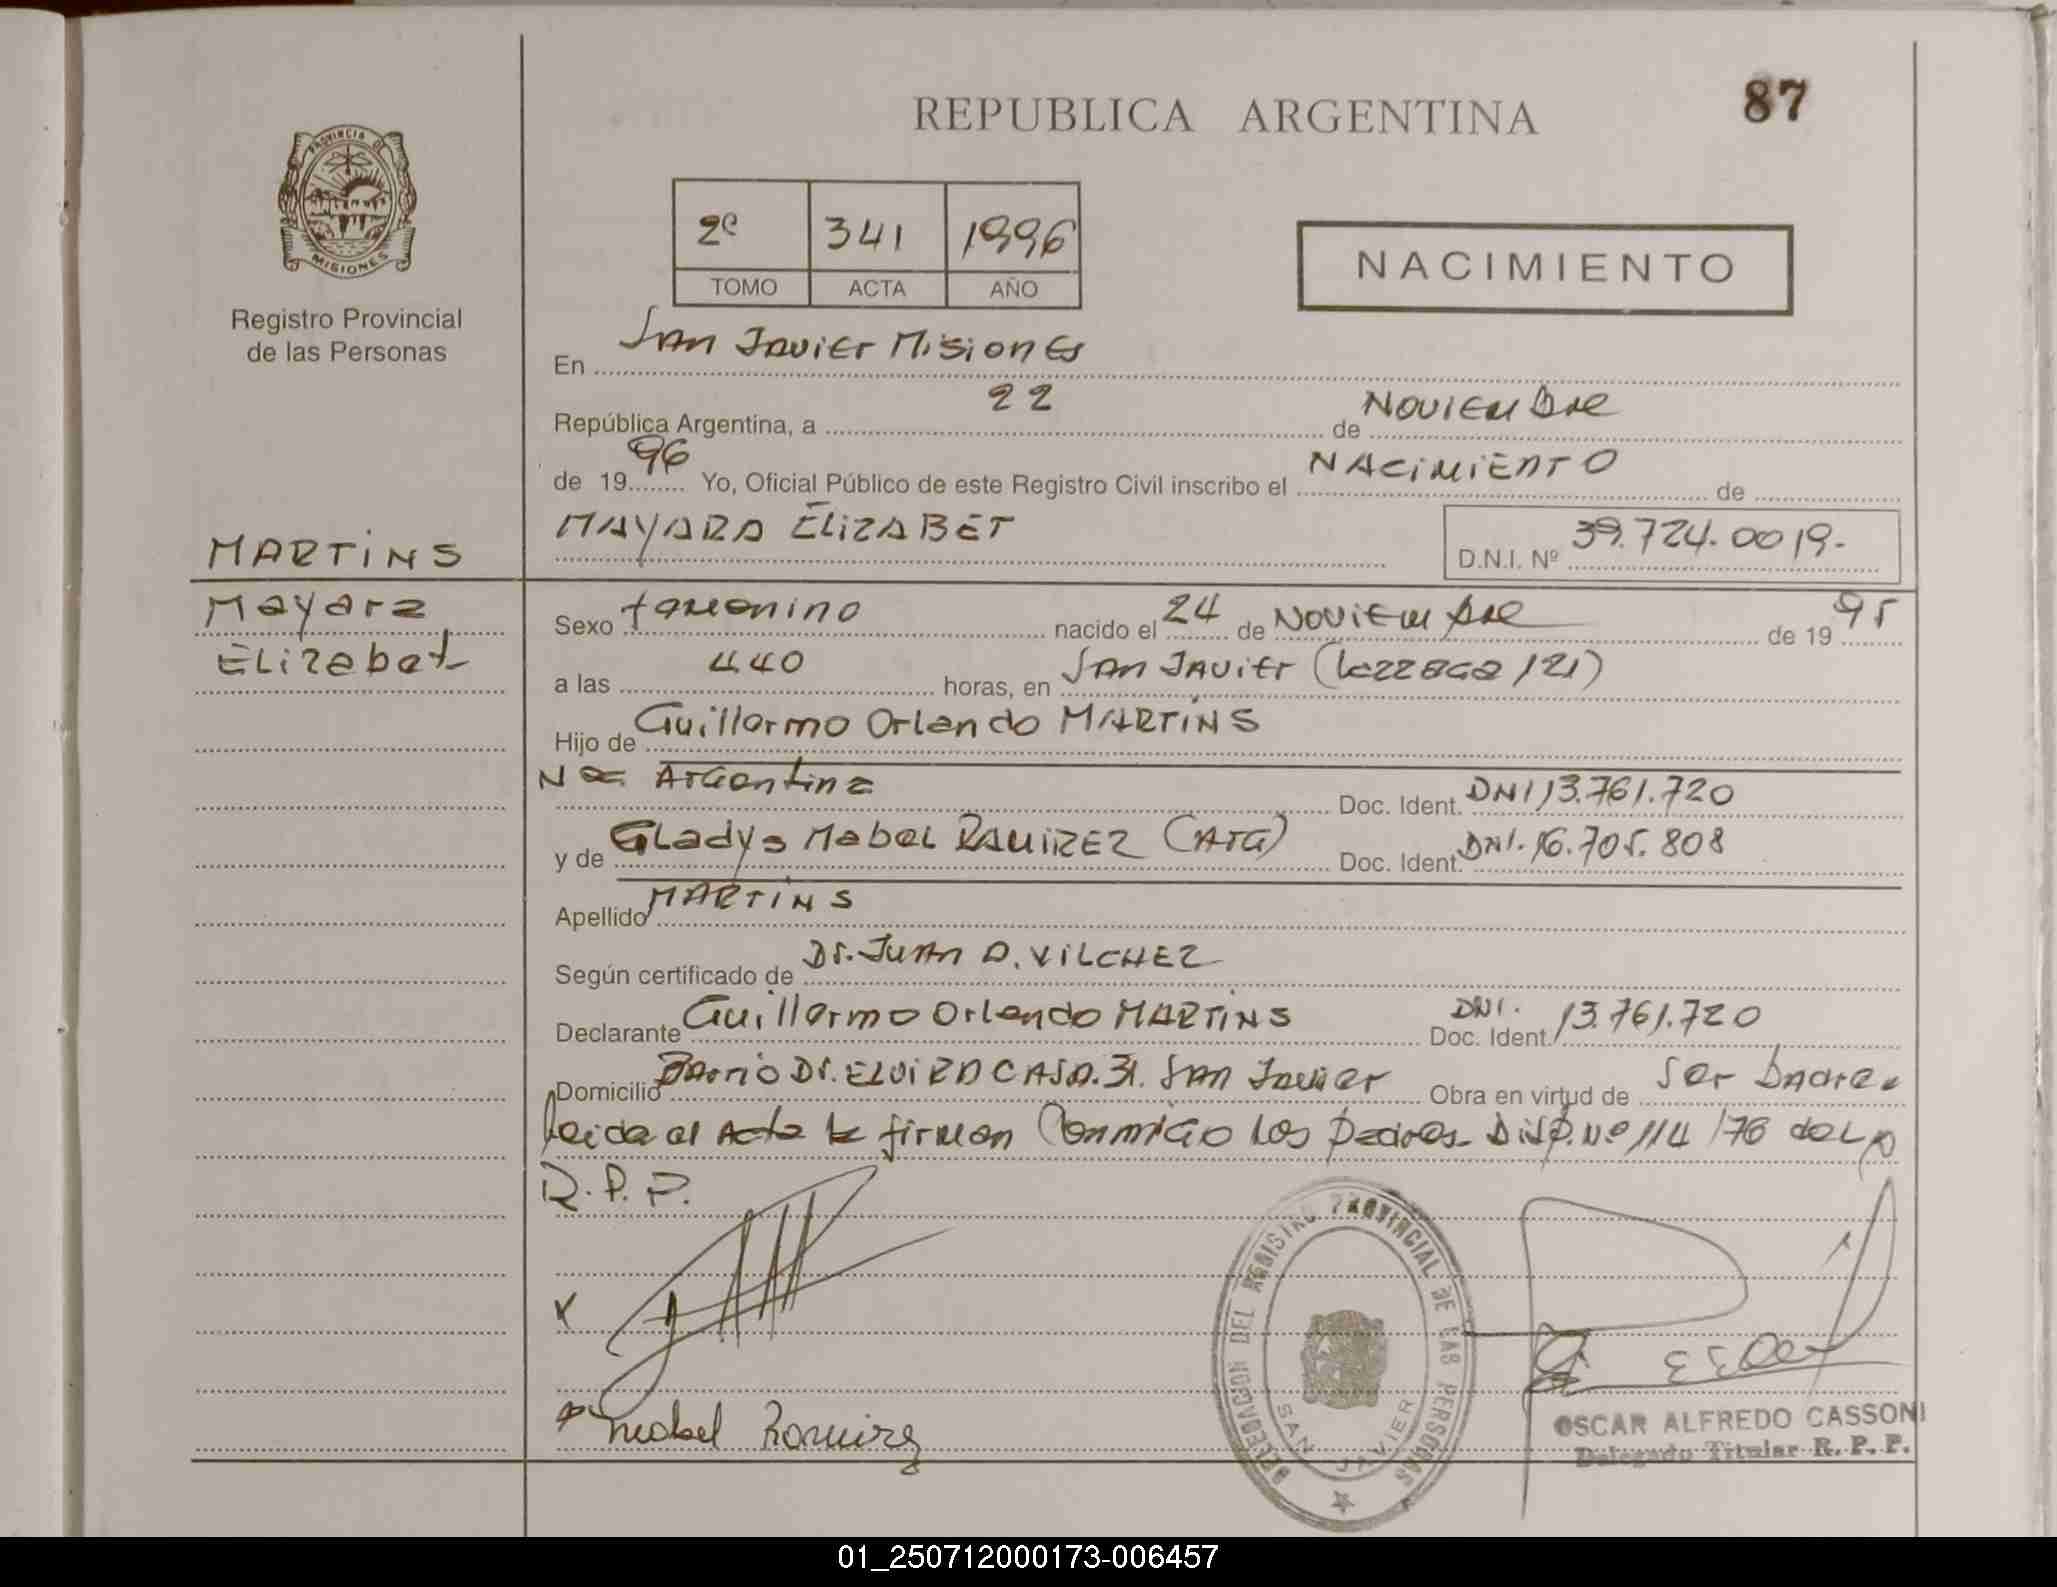 87
REPUBLICA ARGENTINA
PROVINCIA DE
MISIONES
Registro Provincial
de las Personas
2º 341 1996
TOMO ACTA AÑO
NACIMIENTO
En San Javier Misiones
República Argentina, a 22 de Noviembre
de 1996 Yo, Oficial Público de este Registro Civil inscribo el NACIMIENTO de
MAYARA ELIZABET D.N.I. Nº 39.724.0019.-
MARTINS
Mayara
Elizabet
Sexo femenino nacido el 24 de Noviembre de 1995
a las 4.40 horas, en San Javier (121)
Hijo de Guillermo Orlando MARTINS
Nac. Argentina Doc. Ident. DNI 13.761.720
y de Gladys Mabel RAMIREZ (ARG) Doc. Ident. DNI. 16.705.808
Apellido MARTINS
Según certificado de Dr. Juan D. VILCHEZ
Declarante Guillermo Orlando MARTINS Doc. Ident. DNI. 13.761.720
Domicilio Barrio Dr. ELVIRA CASA. 31. San Javier Obra en virtud de ser padre.
Leida el Acta la firman conmigo los padres. Disp. Nº 114/76 del
R.P.P.
X
Mabel Ramirez
DELEGACION DEL REGISTRO PROVINCIAL DE LAS PERSONAS
SAN JAVIER
OSCAR ALFREDO CASSONI
Delegado Titular R. P. P.
01_250712000173-006457